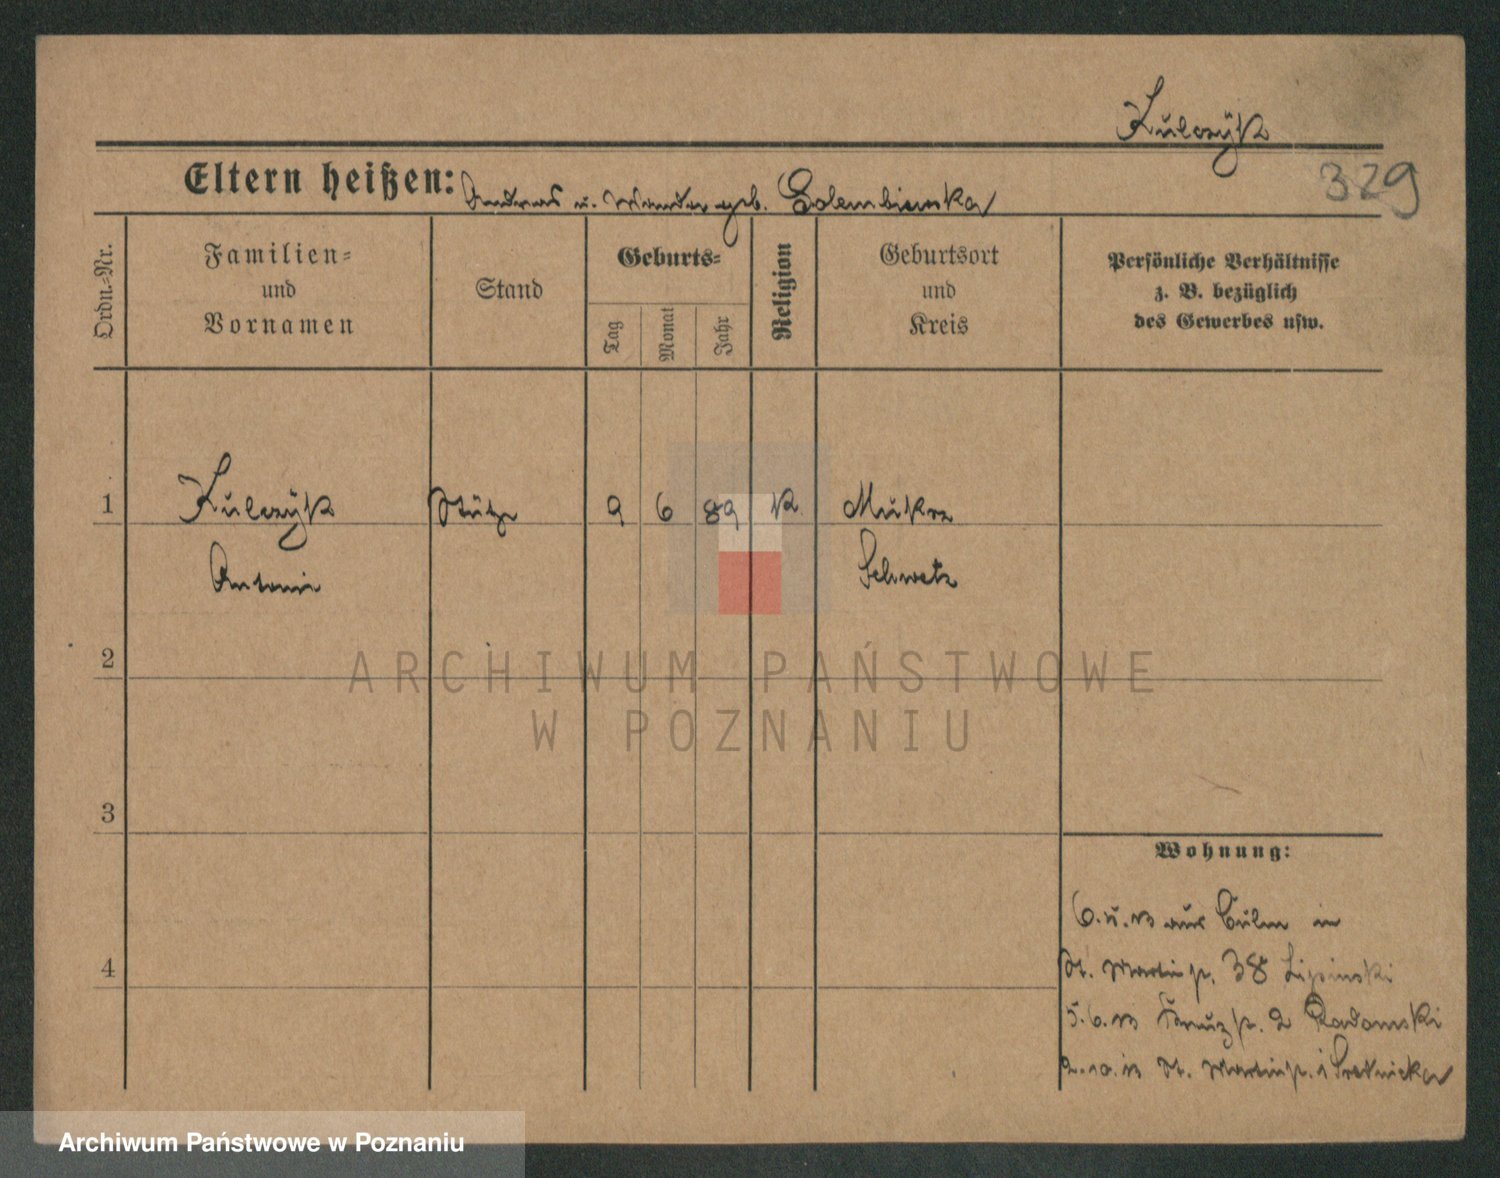 Kulczyk
329
Eltern heißen: Andreas u. Wanda geb. Golembiewska
Ordn.-Nr.
Familien-
und
Vornamen
Stand
Geburts-
Tag
Monat
Jahr
Religion
Geburtsort
und
Kreis
Persönliche Verhältnisse
z. B. bezüglich
des Gewerbes usw.
1 Kulczyk Stütze 9 6 89 K
Antonie Schwetz
2
ARCHIWUM PAŃSTWOWE
W POZNANIU
3
Wohnung:
aus Culm in
4
St. Martinstr. 38 Lipinski
5.6.13 Kreuzstr. 2 Radomski
2.10.13 St. Martinstr.
Archiwum Państwowe w Poznaniu